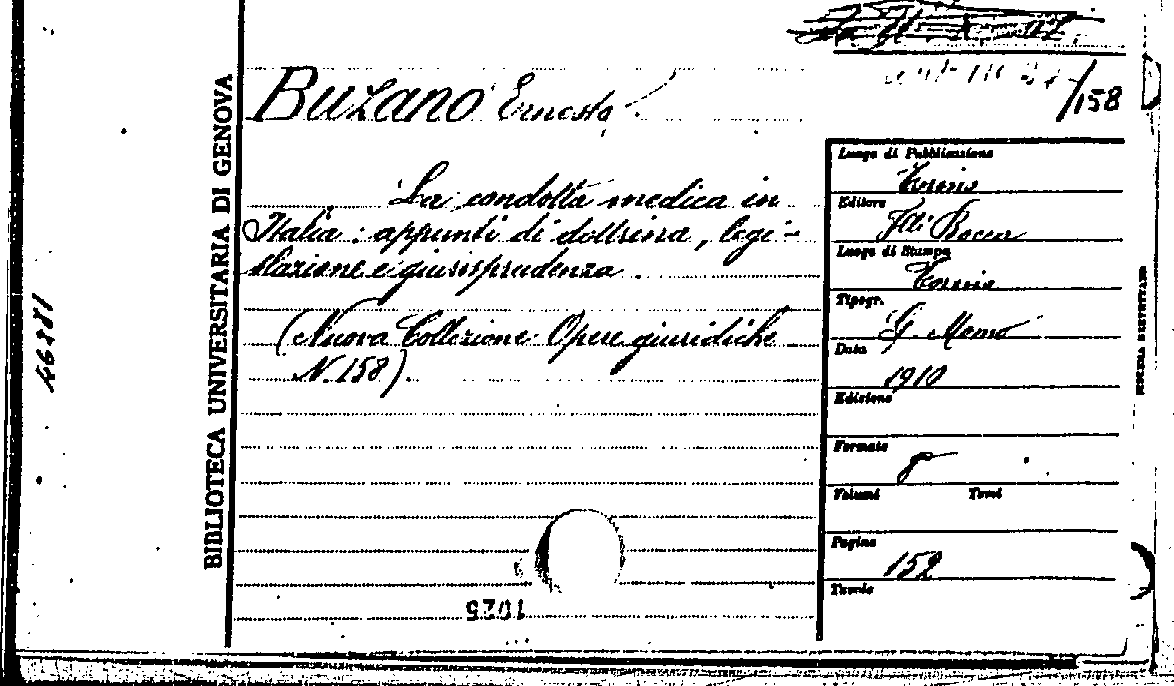 /158
Buzano Ernesto
La condotta medica in
Italia : appunti di dottrina, legi-
slazione e giurisprudenza.
(Nuova Collezione Opere giuridiche
N. 158).
BIBLIOTECA UNIVERSITARIA DI GENOVA
Luogo di Pubblicazione
Torino
Editore
F.lli Bocca
Luogo di Stampa
Torino
Tipogr.
G. Momo
Data
1910
Edizione
Formato
8°
Volumi Tomi
Pagine
152
Tavole